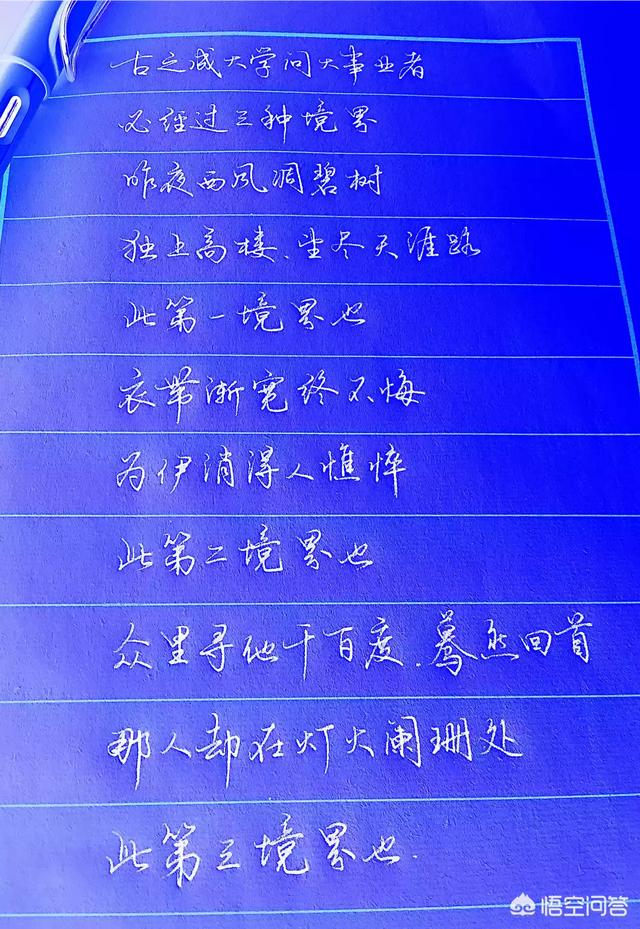 古之成大学问大事业者
必经过三种境界
昨夜西风凋碧树
独上高楼、望尽天涯路
此第一境界也
衣带渐宽终不悔
为伊消得人憔悴
此第二境界也
众里寻他千百度.蓦然回首
那人却在灯火阑珊处
此第三境界也.
悟空问答